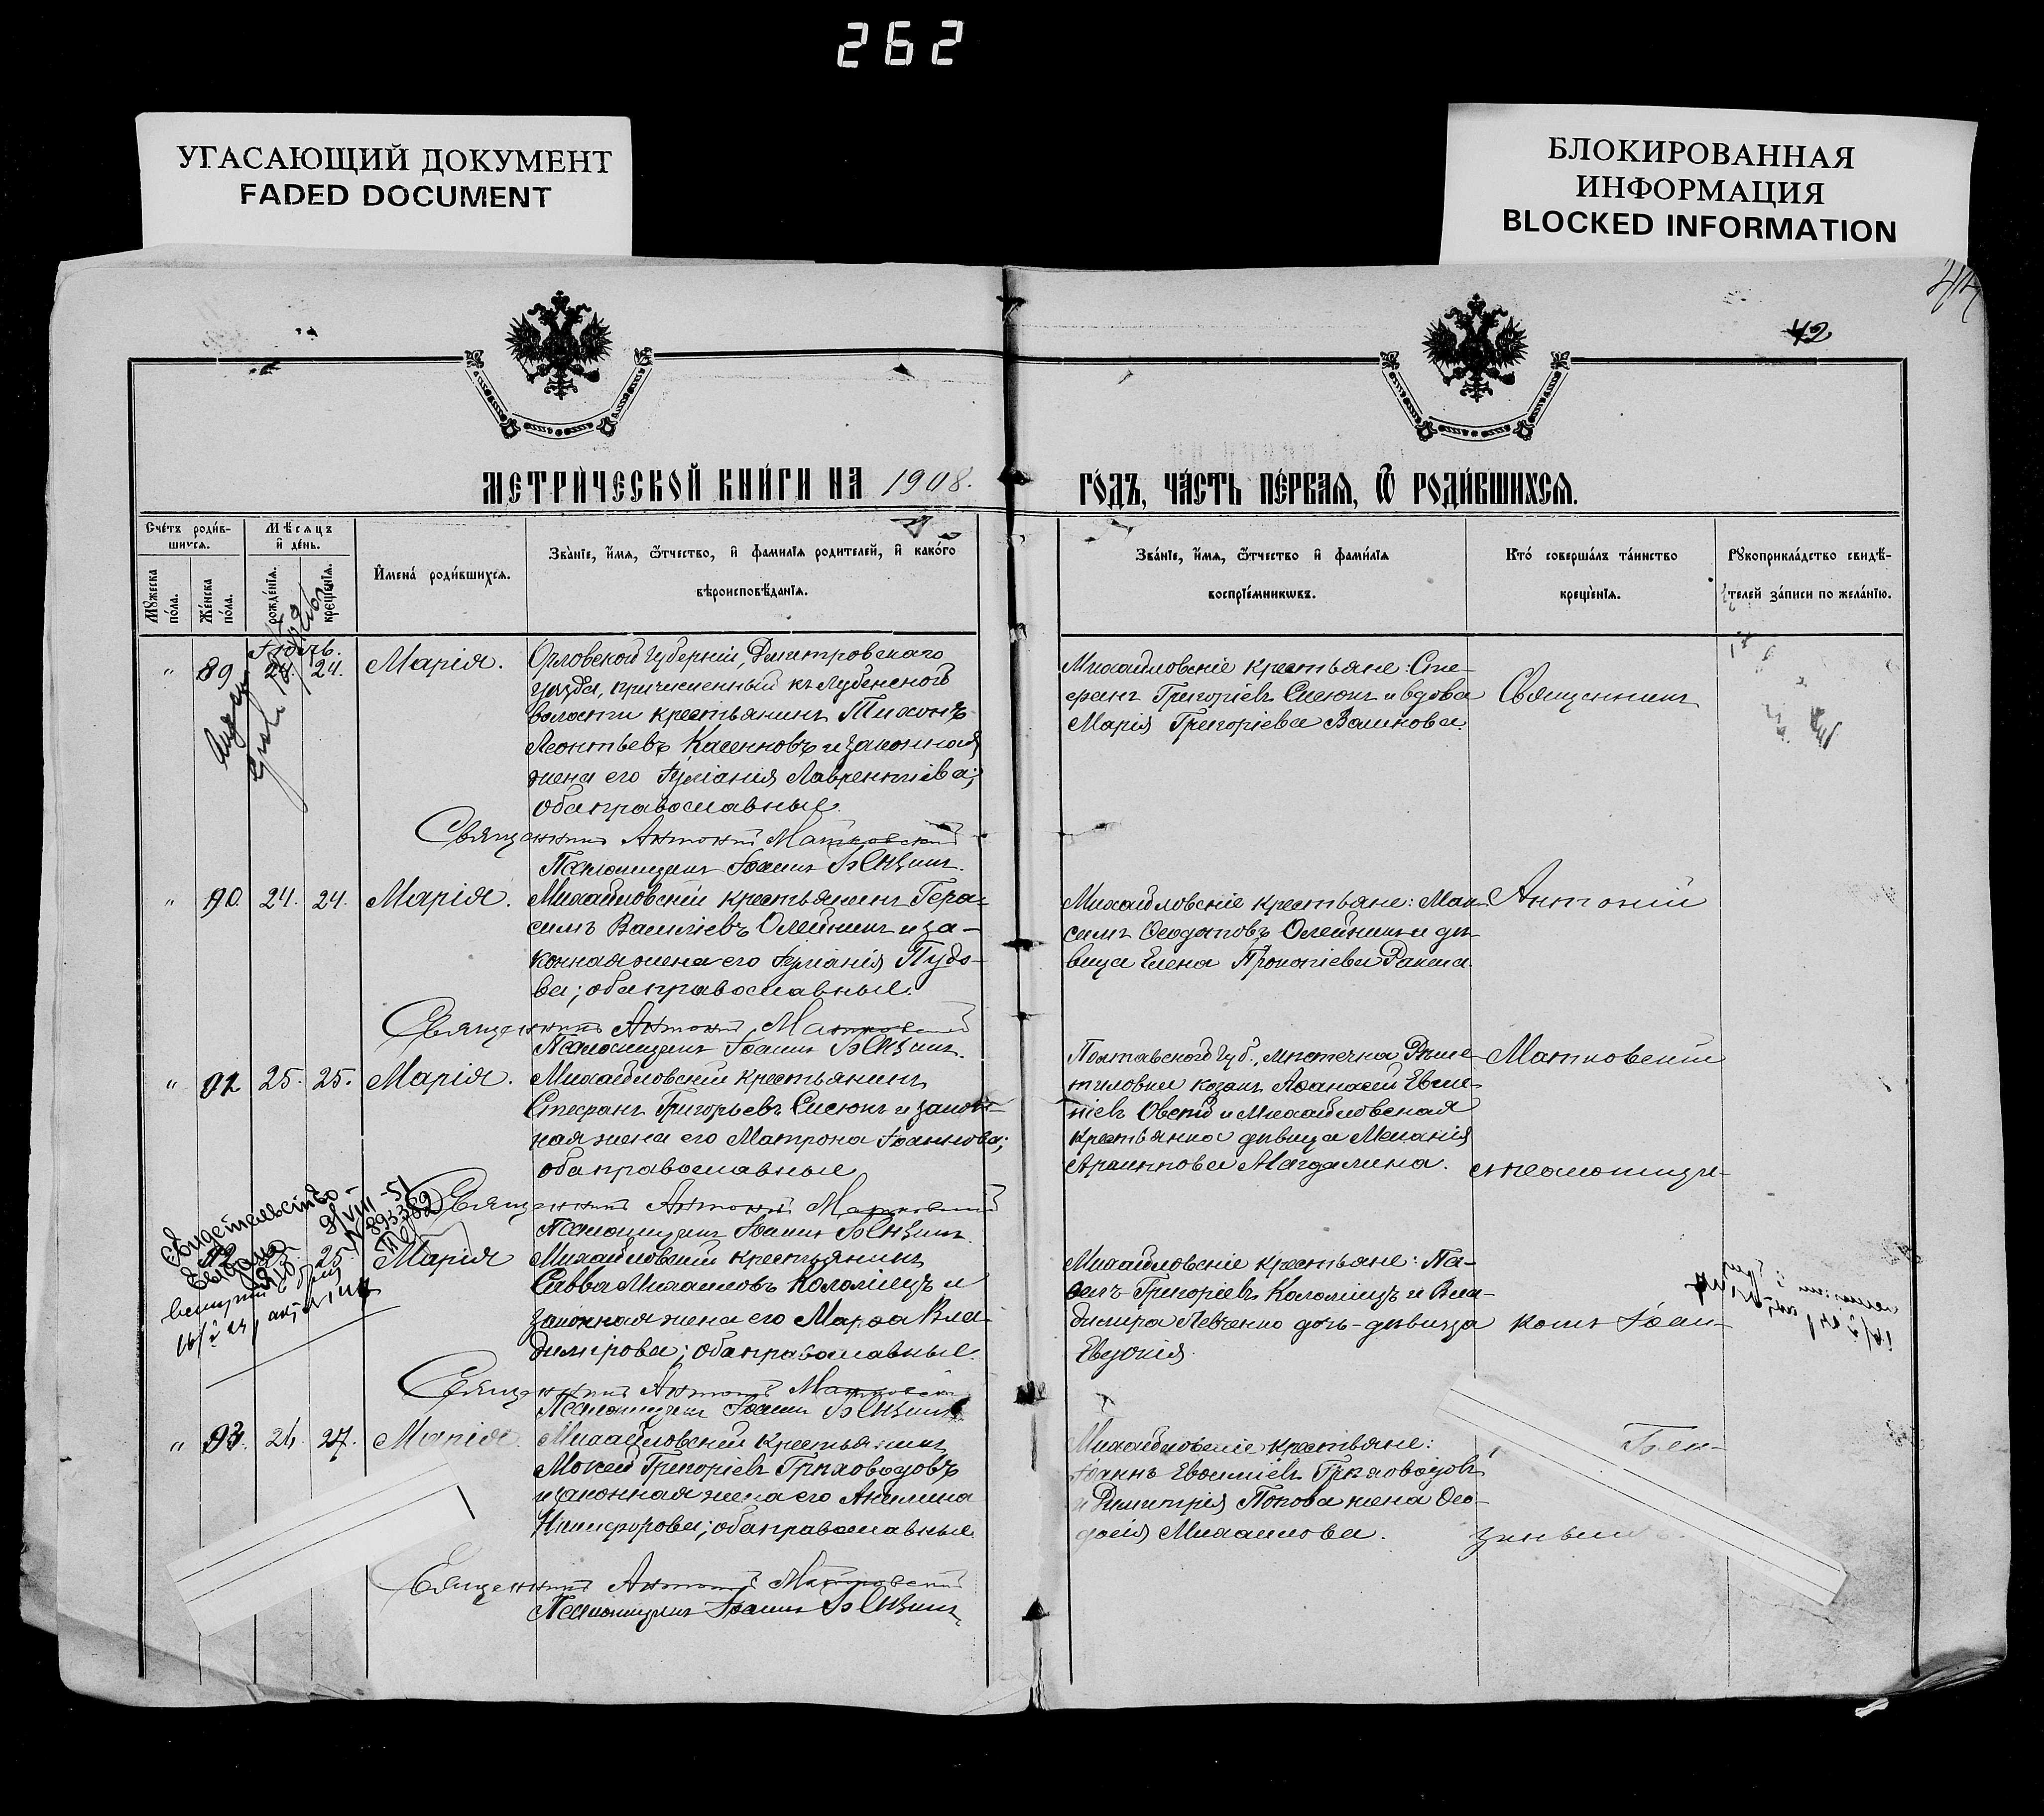 262
УГАСАЮЩИЙ ДОКУМЕНТ
FADED DOCUMENT
БЛОКИРОВАННАЯ
ИНФОРМАЦИЯ
BLOCKED INFORMATION
42
МЕТРИ́ЧЕСКОЙ КНИ́ГИ НА 1908.
ГО́ДЪ, ЧА́СТЬ ПЕ́РВАѦ, Ѿ РОДИ́ВШИХСѦ.
Сче́тъ роди́в-
шихсѧ.
Мꙋжеска по́ла.
Же́нска по́ла.
Мѣ́сѧцъ
и̂ де́нь.
рожде́нїѧ.
креще́нїѧ.
И̂мена̀ роди́вшихсѧ.
Зва́нїе, и́мѧ, ѻ́тчество, и̂ фами́лїѧ роди́телей, и̂ како́гѡ
вѣроисповѣ́данїѧ.
Зва́нїе, и́мѧ, ѻ́тчество и̂ фами́лїѧ
воспрїе́мникѡвъ.
Кто̀ соверша́лъ та́инство
креще́нїѧ.
Рꙋкоприкла́дство свидѣ́-
телей за́писи по жела́нїю.
" 89 24. 24. Марія.
Орловской губерніи, Дмитровскаго
уѣзда, причисленный къ Лубенской
волости крестьянинъ Тихонъ
Леонтьевъ Касенковъ и законная
жена его Іуліанія Лаврентіева;
оба православные.
Священникъ Антоній Матковскій
Псаломщикъ Іоаннъ
Михайловскіе крестьяне: Сте-
фанъ Григорьевъ Сисюкъ и вдова
Марія Григоріева
Священникъ
" 90. 24. 24. Марія.
Михайловскій крестьянинъ Гера-
симъ Васильевъ Олейникъ и за-
конная жена его Іуліанія Пудо-
ва; оба православные.
Священникъ Антоній Матковскій
Псаломщикъ Іоаннъ
Михайловскіе крестьяне: Мак-
симъ Ѳеодотовъ Олейникъ и дѣ-
вица Елена Прокопіева Ракша.
Антоній
" 91 25. 25. Марія.
Михайловскій крестьянинъ
Стефанъ Григорьевъ Сисюкъ и закон-
ная жена его Матрона Іоаннова;
оба православные
Священникъ Антоній Матковскій
Псаломщикъ Іоаннъ
Полтавской губ., мѣстечка Рѣше-
тиловки козакъ Аѳанасій
Овсій и Михайловская
крестьянка дѣвица Меланія
Магдалина.
Матковскій
съ псаломщи-
Свидетельство
9/VIII-51
25. Марія
Михайловскій крестьянинъ
Савва Михаиловъ Коломіецъ и
законная жена его Марѳа Вла-
димірова; оба православные.
Священникъ Антоній Матковскій
Псаломщикъ Іоаннъ
Михайловскіе крестьяне: Па-
велъ Григорьевъ Коломіецъ и Вла-
диміра Левченко дочь-дѣвица
Евдокія.
комъ Іоан-
" 93. 26. 27. Марія.
Михайловскій крестьянинъ
Мокей Григорьевъ Грѣховодовъ
и законная жена его Акилина
Никифорова; оба православные.
Священникъ Антоній Матковскій
Псаломщикъ Іоаннъ
Михайловскіе крестьяне:
Іоаннъ Евѳиміевъ Грѣховодовъ
и Димитрія Попова жена Ѳео-
досія Михаилова.